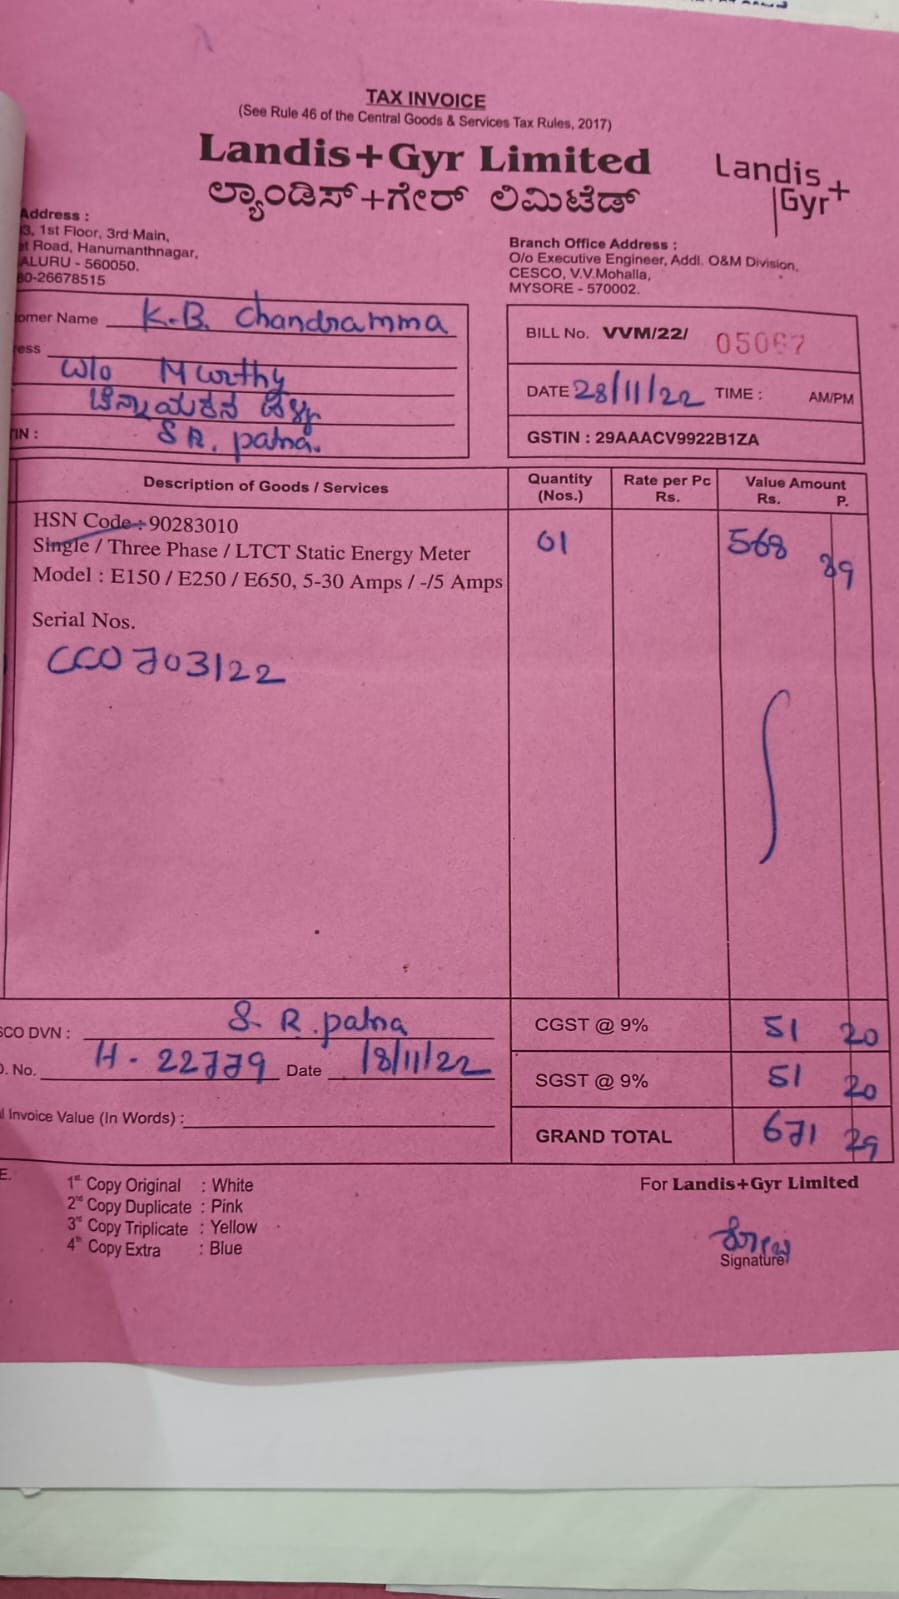 TAX INVOICE
(See Rule 46 of the Central Goods & Services Tax Rules, 2017)
Landis+Gyr Limited
ಲ್ಯಾಂಡಿಸ್+ಗೇರ್ ಲಿಮಿಟೆಡ್
Landis
Gyr+
Address :
3, 1st Floor, 3rd Main,
t Road, Hanumanthnagar,
ALURU - 560050.
80-26678515
Branch Office Address :
O/o Executive Engineer, Addl. O&M Division,
CESCO, V.V.Mohalla,
MYSORE - 570002.
omer Name K.B. Chandramma
ress
W/o Murthy
S R. patna.
TIN :
BILL No. VVM/22/ 05067
DATE 28/11/22 TIME : AM/PM
GSTIN : 29AAACV9922B1ZA
Description of Goods / Services Quantity (Nos.) Rate per Pc Rs. Value Amount Rs. P.
HSN Code : 90283010
Single / Three Phase / LTCT Static Energy Meter 01 568 89
Model : E150 / E250 / E650, 5-30 Amps / -/5 Amps
Serial Nos.
CCO703122
SCO DVN : S. R. patna
O. No. H - 22779 Date 18/11/22
l Invoice Value (In Words) :
CGST @ 9% 51 20
SGST @ 9% 51 20
GRAND TOTAL 671 29
E.
1st Copy Original : White
2nd Copy Duplicate : Pink
3rd Copy Triplicate : Yellow
4th Copy Extra : Blue
For Landis+Gyr Limited
Signature